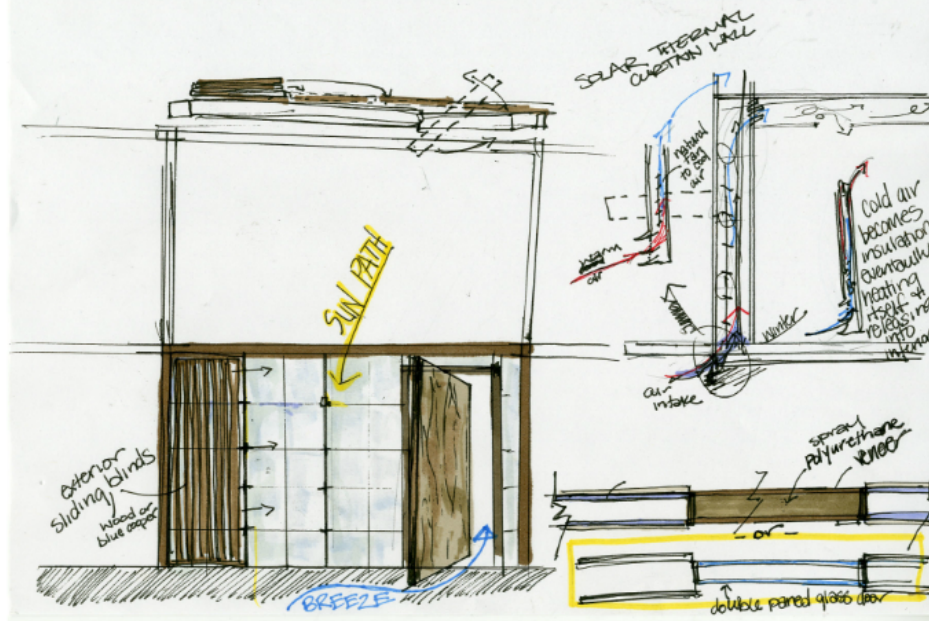 SOLAR THERMAL
CURTAIN WALL
natural
fan
to cool
air
warm
air
SUN PATH
cold air
becomes
insulation
eventually
heating
itself &
releasing
into
interior
summer
winter
air
intake
exterior
sliding blinds
wood or
blue copper
BREEZE
spray
polyurethane
veneer
- or -
double paned glass door